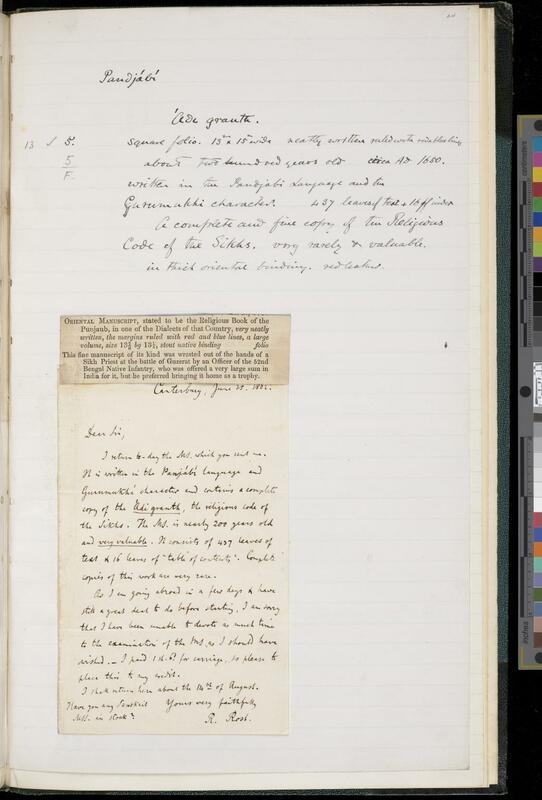 Pandjábí
'Ade granth.
13 J 5.
5
F.
square folio. 13" x 15" wide neatly written ruled with red & blue lines
about two hundred years old circa AD 1650.
written in the Pandjábi Language and the
Gurumukhi character. 437 leaves of text + 16 ff index
A complete and fine copy of the Religious
Code of the Sikhs. very rarely & valuable.
in thick oriental binding. red leather.
ORIENTAL MANUSCRIPT, stated to be the Religious Book of the
Punjaub, in one of the Dialects of that Country, very neatly
written, the margins ruled with red and blue lines, a large
volume, size 13¾ by 13½, stout native binding folio
This fine manuscript of its kind was wrested out of the hands of a
Sikh Priest at the battle of Guzerat by an Officer of the 52nd
Bengal Native Infantry, who was offered a very large sum in
India for it, but he preferred bringing it home as a trophy.
Canterbury, June 25.
Dear Sir,
I return to-day the MS. which you sent me.
It is written in the Panjábí language and
Gurumukhí character and contains a complete
copy of the Ádi granth, the religious code of
the Sikhs. The MS. is nearly 200 years old
and very valuable. It consists of 437 leaves of
text & 16 leaves of "table of contents". Complete
copies of this work are very rare.
As I am going abroad in a few days & have
still a great deal to do before starting, I am sorry
that I have been unable to devote as much time
to the examination of the MS. as I should have
wished. – I paid for carriage, so please to
place this to my credit.
I shall return here about the 14th of August.
Have you any Sanskrit Yours very faithfully
MSS. in stock? R. Rost.
centimetres
inches